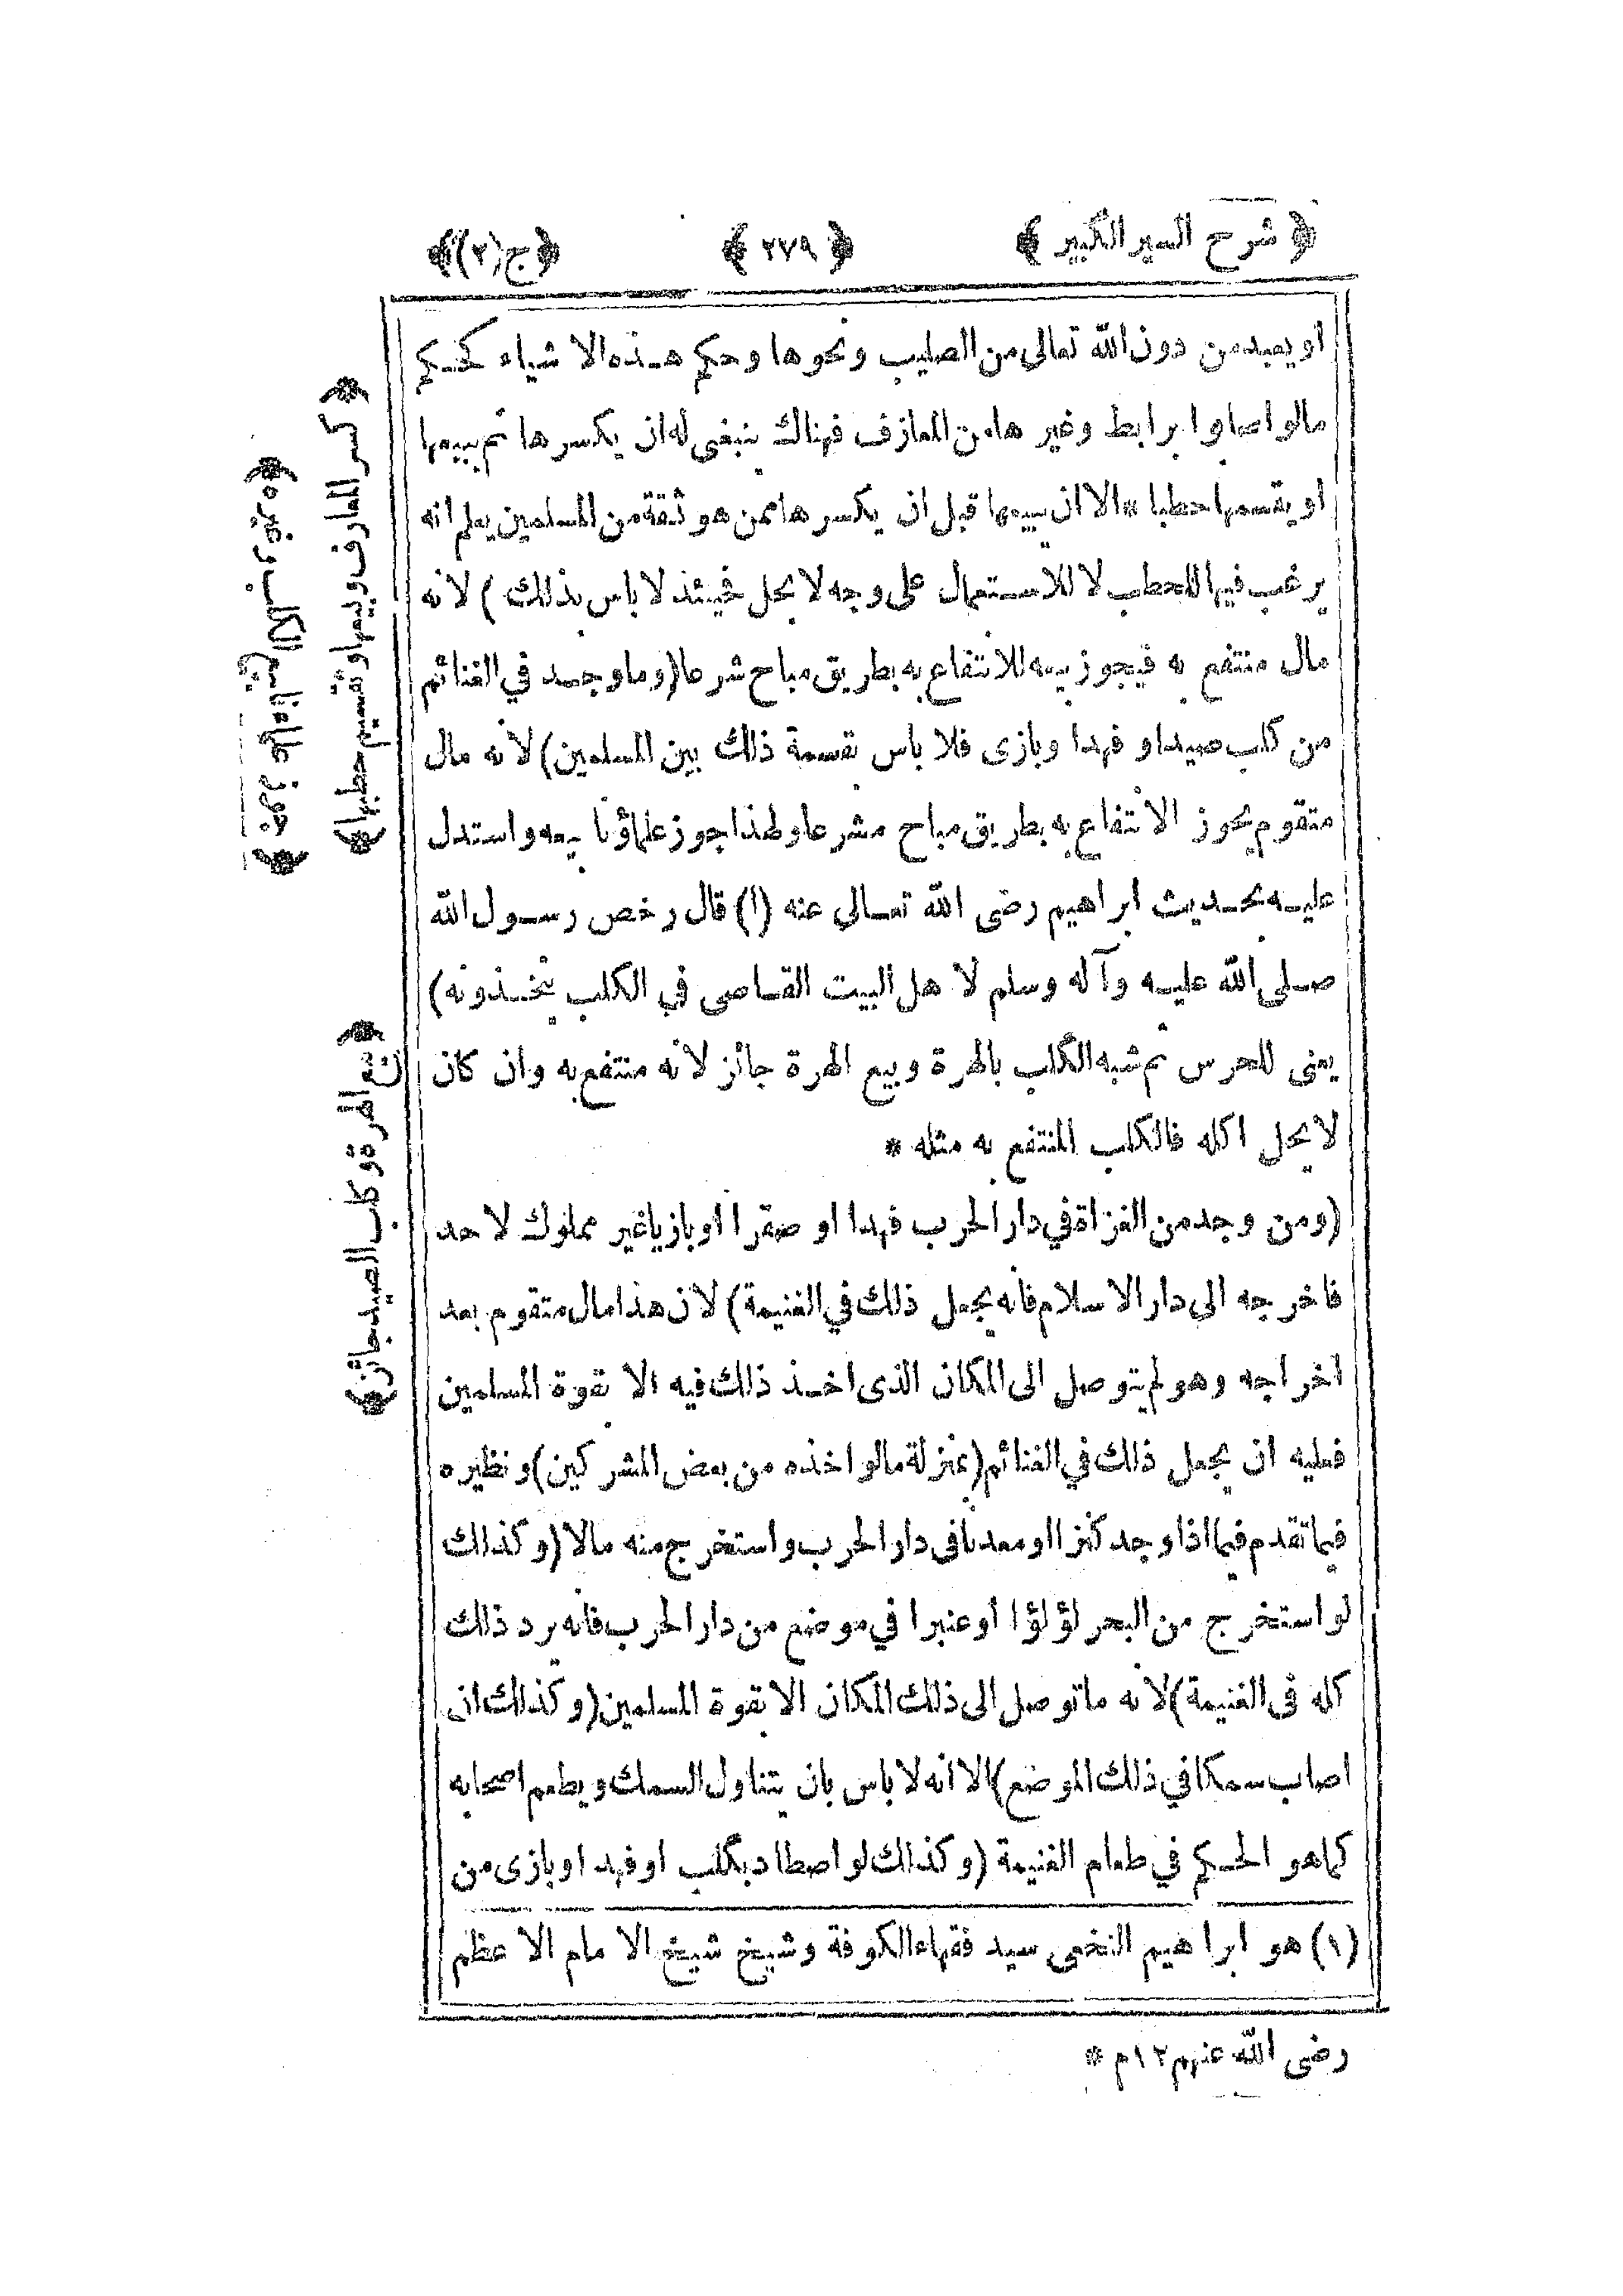 ﴿ شرح السير الكبير ﴾ ﴿ ٢٧٩ ﴾ ﴿ ج (٢) ﴾
او يعبد من دون الله تعالى من الصليب ونحوها وحكم هذه الاشياء كحكم
مالو اصابوا برابط وغيرها من المعازف فهناك ينبغى له ان يكسرها ثم يبيعها
او يقسمها حطبا * الا ان يبيعها قبل ان يكسرها ممن هو ثقة من المسلمين يعلم انه
يرغب فيها للحطب لا للاستعمال على وجه لا يحل فحينئذ لا باس بذلك ) لانه
مال منتفع به فيجوز بيعه للانتفاع به بطريق مباح شرعا (وما وجد في الغنائم
من كلب صيد او فهد او بازى فلا باس بقسمة ذلك بين المسلمين) لانه مال
متقوم يجوز الانتفاع به بطريق مباح شرعا ولهذا جوز علماؤنا بيعه واستدل
عليه بحديث ابراهيم رضى الله تعالى عنه (١) قال رخص رسول الله
صلى الله عليه وآله وسلم لاهل البيت القاصى في الكلب يتخذونه)
يعنى للحرس ثم شبه الكلب بالهرة وبيع الهرة جائز لانه منتفع به وان كان
لا يحل اكله فالكلب المنتفع به مثله *
(ومن وجد من الغزاة في دار الحرب فهدا او صقرا او بازيا غير مملوك لاحد
فاخرجه الى دار الاسلام فانه يجعل ذلك في الغنيمة) لان هذا مال متقوم بعد
اخراجه وهو لم يتوصل الى المكان الذى اخذ ذلك فيه الا بقوة المسلمين
فعليه ان يجعل ذلك في الغنائم (بمنزلة مالو اخذه من بعض المشركين) ونظيره
فيما تقدم فيما اذا وجد كنزا او معدنا فى دار الحرب واستخرج منه مالا (وكذلك
لو استخرج من البحر لؤلؤا او عنبرا في موضع من دار الحرب فانه يرد ذلك
كله فى الغنيمة) لانه ما توصل الى ذلك المكان الا بقوة المسلمين (وكذلك ان
اصاب سمكا في ذلك الموضع) الا انه لا باس بان يتناول السمك ويطعم اصحابه
كما هو الحكم في طعام الغنيمة (وكذلك لو اصطاد بكلب او فهد او بازى من
(١) هو ابراهيم النخعى سيد فقهاء الكوفة وشيخ شيخ الامام الاعظم
رضى الله عنهم ١٢ م *
﴿ كسر المعازف وبيعها وتقسيم حطبها ﴾
الهرة وكلب الصيد جائز ﴾